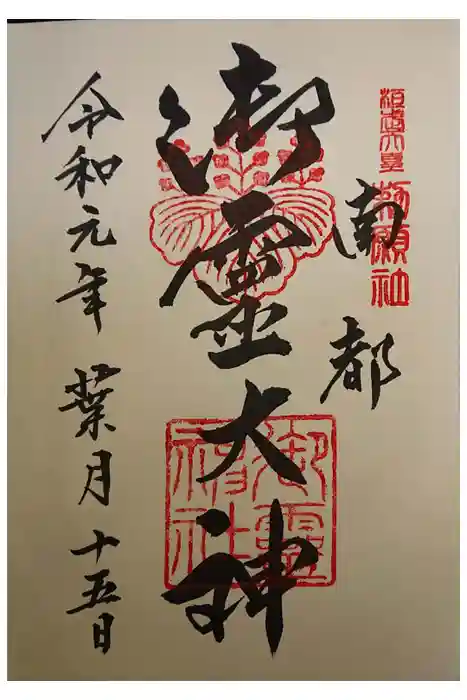 南都
御霊大神
令和元年 葉月 十五日
勅願社
御霊
神社